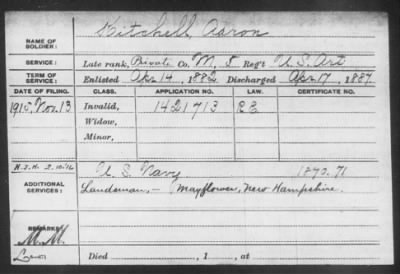 NAME OF SOLDIER: Kitchell, Aaron
SERVICE: Late rank, Private Co. M, 5 Reg't U.S. Art
TERM OF SERVICE: Enlisted Apr 14, 1882 Discharged Apr 17, 1887
DATE OF FILING. CLASS. APPLICATION NO. LAW. CERTIFICATE NO.
1915 Nov. 13 Invalid, 1421713
Widow,
Minor,
U.S. Navy 1870-71
ADDITIONAL SERVICES: Landsman, - Mayflower, New Hampshire.
REMARKS:
Died , 1 , at